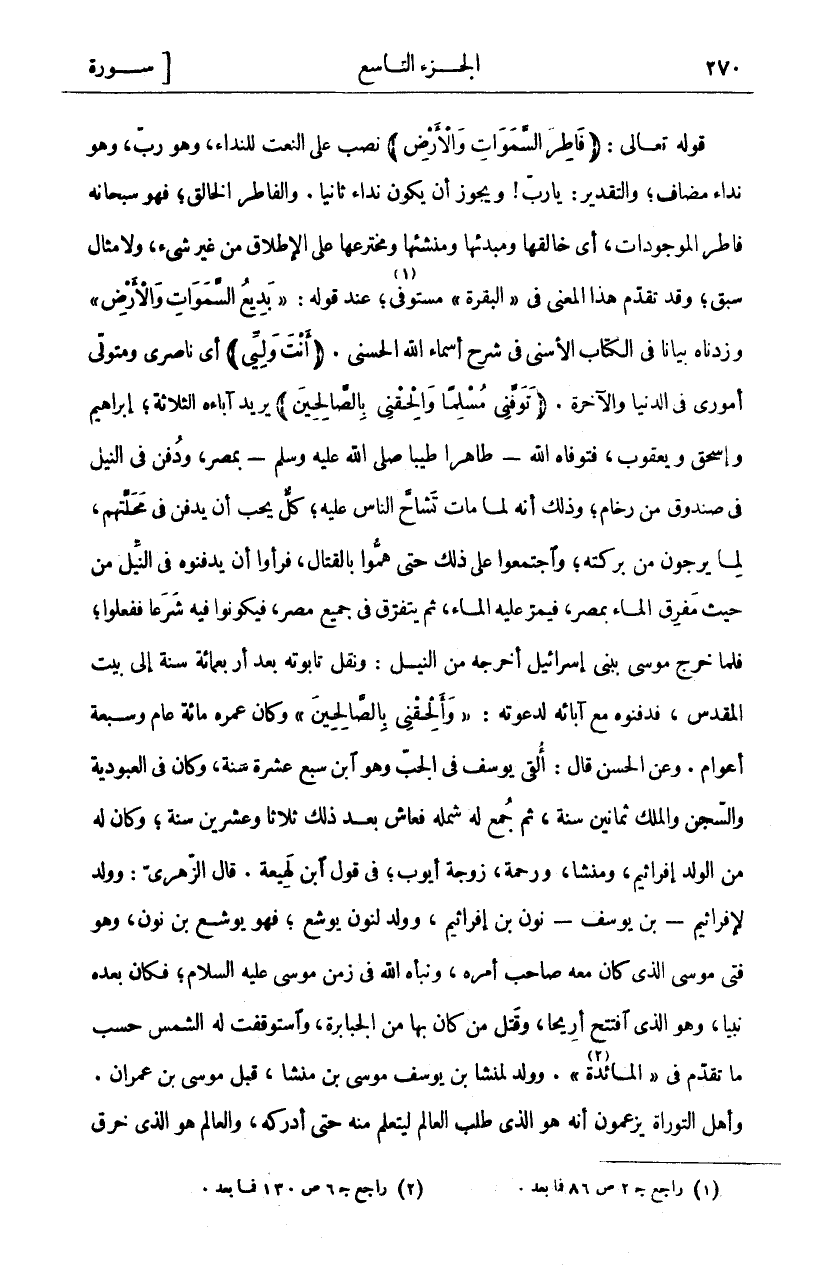 ٢٧٠ الجـــزء التـاسع [ ســـورة
قوله تعـالى : ﴿ فَاطِرَ السَّمَوَاتِ وَالْأَرْضِ ﴾ نصب على النعت للنداء، وهو ربّ، وهو
نداء مضاف؛ والتقدير : ياربّ! ويجوز أن يكون نداء ثانيا . والفاطر الخالق؛ فهو سبحانه
فاطر الموجودات، أى خالقها ومبدئها ومنشئها ومخترعها على الإطلاق من غير شىء، ولا مثال
سبق؛ وقد تقدّم هذا المعنى فى « البقرة » (١) مستوفًى؛ عند قوله : « بَدِيعُ السَّمَوَاتِ وَالْأَرْضِ »
وزدناه بيانا فى الكتاب الأسنى فى شرح أسماء الله الحسنى . ﴿ أَنْتَ وَلِيِّى ﴾ أى ناصرى ومتولّى
أمورى فى الدنيا والآخرة . ﴿ تَوَفَّنِى مُسْلِمًا وَأَلْحِقْنِى بِالصَّالِحِينَ ﴾ يريد آباءه الثلاثة؛ إبراهيم
وإسحق ويعقوب، فتوفاه الله — طاهرا طيبا صلى الله عليه وسلم — بمصر، ودُفن فى النيل
فى صندوق من رخام؛ وذلك أنه لمـا مات تَشَاحَّ الناس عليه؛ كلٌّ يحب أن يدفن فى مَحَلَّتهم،
لِمـا يرجون من بركته؛ وٱجتمعوا على ذلك حتى همُّوا بالقتال، فرأوا أن يدفنوه فى النِّيل من
حيث مَفرِق المـاء بمصر، فيمرّ عليه المـاء، ثم يتفرّق فى جميع مصر، فيكونوا فيه شَرَعا ففعلوا؛
فلما خرج موسى ببنى إسرائيل أخرجه من النيـل : ونقل تابوته بعد أربعمائة سنة إلى بيت
المقدس ، فدفنوه مع آبائه لدعوته : « وَأَلْحِقْنِى بِالصَّالِحِينَ » وكان عمره مائة عام وسـبعة
أعوام . وعن الحسن قال : أُلقى يوسف فى الجبّ وهو ٱبن سبع عشرة سنة، وكان فى العبودية
والسّجن والملك ثمانين سنة ، ثم جُمع له شمله فعاش بعـد ذلك ثلاثا وعشرين سنة ؛ وكان له
من الولد إفراثيم، ومنشا، ورحمة، زوجة أيوب؛ فى قول ٱبن لَهِيعة . قال الزهرىّ : وولد
لإفراثيم — بن يوسف — نون بن إفراثيم ، وولد لنون يوشع ؛ فهو يوشـع بن نون، وهو
فتى موسى الذى كان معه صاحب أمره ، ونبأه الله فى زمن موسى عليه السلام؛ فكان بعده
نبيا، وهو الذى ٱفتتح أَرِيحا، وقَتل من كان بها من الجبابرة، وٱستوقفت له الشمس حسب
ما تقدّم فى « المـائدة » (٢) . وولد لمنشا بن يوسف موسى بن منشا ، قبل موسى بن عمران .
وأهل التوراة يزعمون أنه هو الذى طلب العالم ليتعلم منه حتى أدركه، والعالم هو الذى خرق
(١) راجع جـ ٢ ص ٨٦ فما بعد . (٢) راجع جـ ٦ ص ١٣٠ فـا بعد .